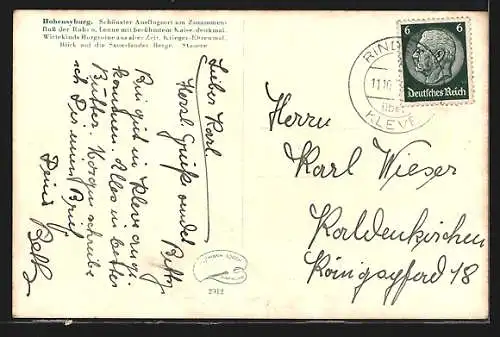 Hohensyburg. Schönster Ausflugsort am Zusammen-
fluß der Ruhr u. Lenne mit berühmtem Kaiserdenkmal.
Wittekinds Burgruine aus alter Zeit. Krieger-Ehrenmal.
Blick auf die Sauerländer Berge. Stausee
Lieber Karl.
Herzl. Grüße sendet Betty.
Bin gut in Kleve angekommen. Alles in bester
Butter. Morgen schreibe
ich Dir einen Brief.
Deine
Betty
2712
RIND
11.10.
über
KLEVE
6 6
Deutsches Reich
Herrn
Karl Wieser
Kaldenkirchen
Königspfad 18